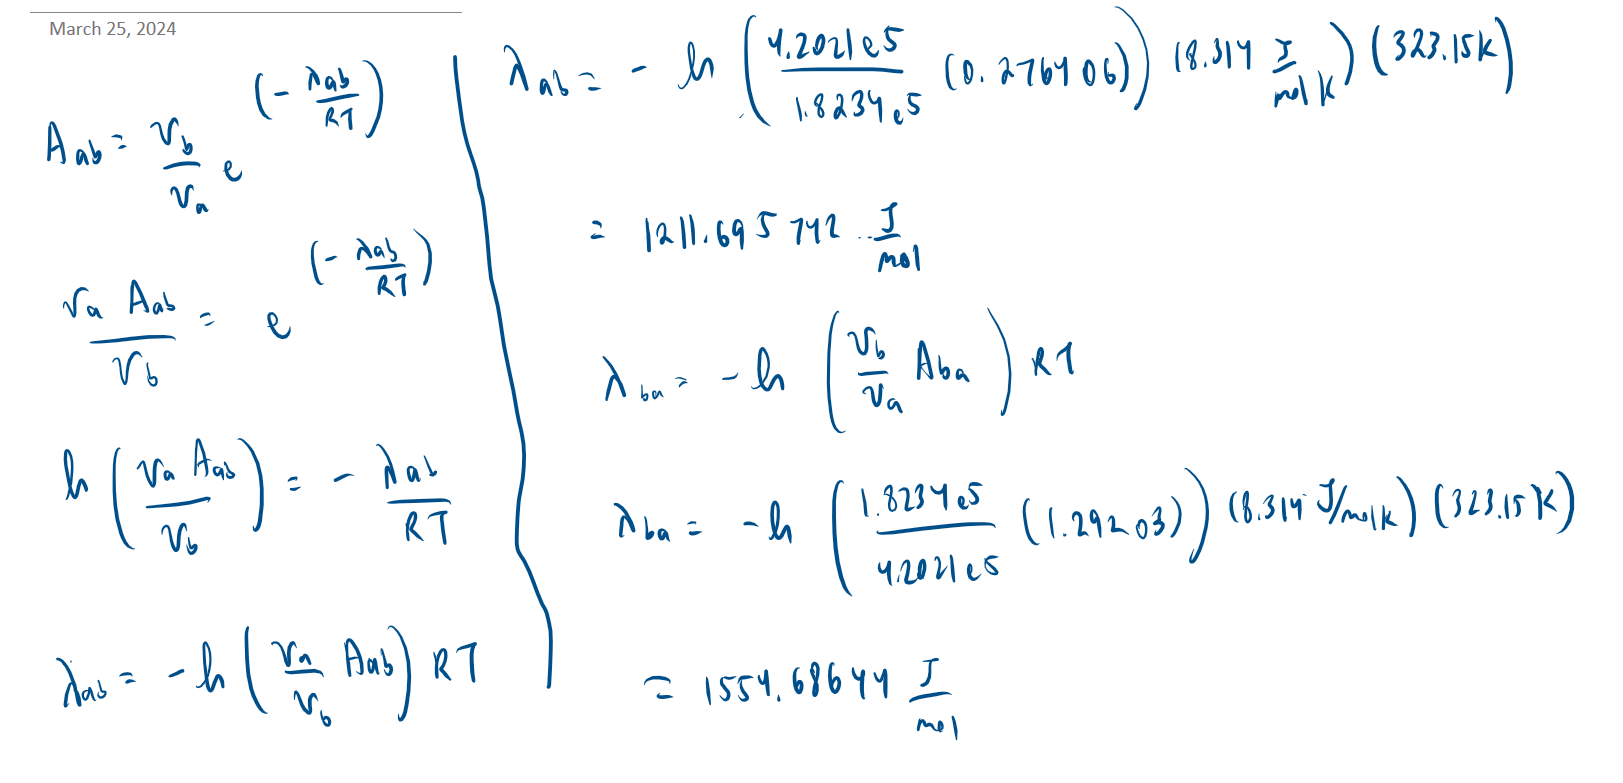 March 25, 2024
A_ab = V_b / V_a e^(- λ_ab / RT)
V_a A_ab / V_b = e^(- λ_ab / RT)
ln (V_a A_ab / V_b) = - λ_ab / RT
λ_ab = - ln (V_a / V_b A_ab) RT
λ_ab = - ln (4.2021e5 / 1.8234e5 (0.276406)) (8.314 J / mol K) (323.15K)
= 1211.695742 J / mol
λ_ba = - ln (V_b / V_a A_ba) RT
λ_ba = - ln (1.8234e5 / 4.2021e5 (1.29203)) (8.314 J/molK) (323.15K)
= 1554.68644 J / mol